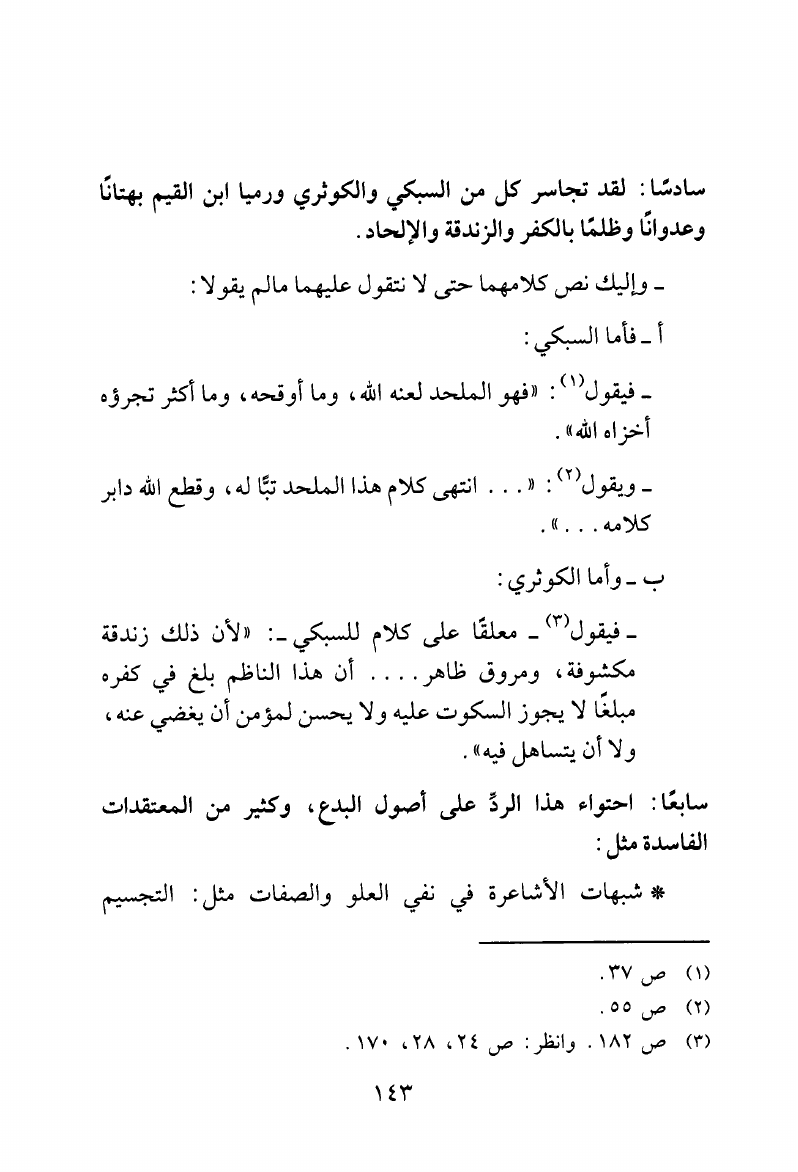 سادسًا: لقد تجاسر كل من السبكي والكوثري ورميا ابن القيم بهتانًا
وعدوانًا وظلمًا بالكفر والزندقة والإلحاد.
ـ وإليك نص كلامهما حتى لا نتقول عليهما مالم يقولا:
أ ـ فأما السبكي:
ـ فيقول(١): «فهو الملحد لعنه الله، وما أوقحه، وما أكثر تجرؤه
أخزاه الله».
ـ ويقول(٢): «... انتهى كلام هذا الملحد تبًّا له، وقطع الله دابر
كلامه...».
ب ـ وأما الكوثري:
ـ فيقول(٣) ـ معلقًا على كلام للسبكي ـ: «لأن ذلك زندقة
مكشوفة، ومروق ظاهر.... أن هذا الناظم بلغ في كفره
مبلغًا لا يجوز السكوت عليه ولا يحسن لمؤمن أن يغضي عنه،
ولا أن يتساهل فيه».
سابعًا: احتواء هذا الردِّ على أصول البدع، وكثير من المعتقدات
الفاسدة مثل:
* شبهات الأشاعرة في نفي العلو والصفات مثل: التجسيم
(١) ص ٣٧.
(٢) ص ٥٥.
(٣) ص ١٨٢. وانظر: ص ٢٤، ٢٨، ١٧٠.
١٤٣